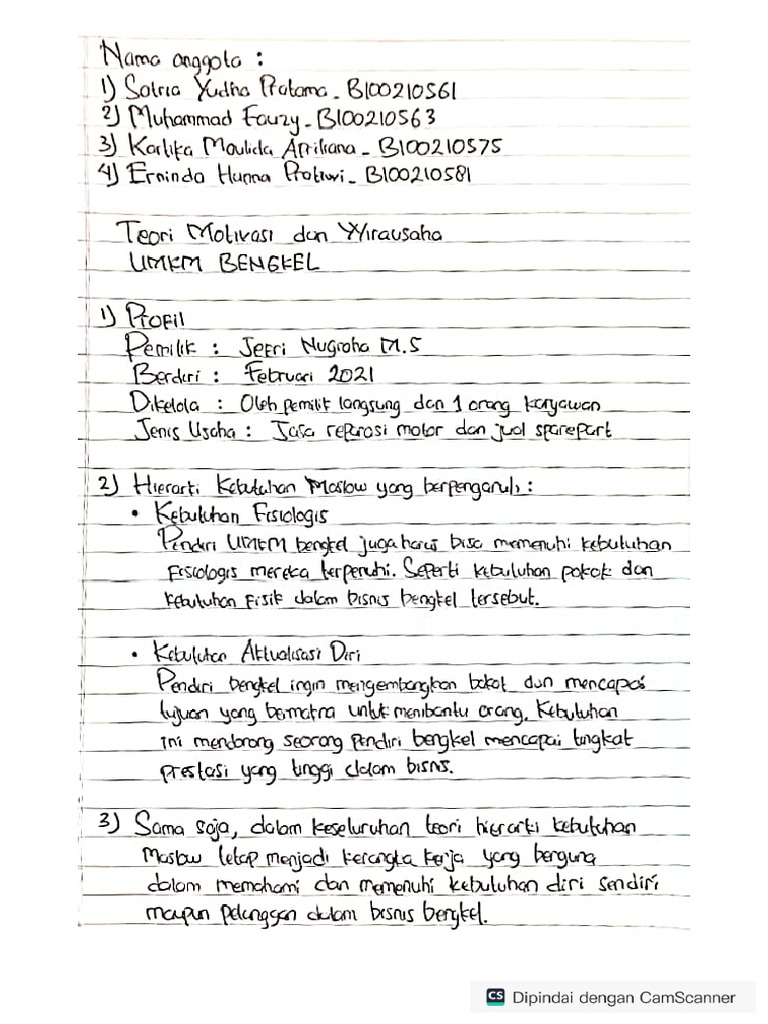 Nama anggota :
1) Satria Yudha Pratama - B100210561
2) Muhammad Fauzy - B100210563
3) Kartika Maulida Apriliana - B100210575
4) Erninda Hunna Pratiwi - B100210581
Teori Motivasi dan Wirausaha
UMKM BENGKEL
1) Profil
Pemilik : Jefri Nugroho M.S
Berdiri : Februari 2021
Dikelola : Oleh pemilik langsung dan 1 orang karyawan
Jenis Usaha : Jasa reparasi motor dan jual sparepart
2) Hierarki Kebutuhan Maslow yang berpengaruh :
• Kebutuhan Fisiologis
Pendiri UMKM bengkel juga harus bisa memenuhi kebutuhan
fisiologis mereka terpenuhi. Seperti kebutuhan pokok dan
kebutuhan fisik dalam bisnis bengkel tersebut.
• Kebutuhan Aktualisasi Diri
Pendiri bengkel ingin mengembangkan bakat dan mencapai
tujuan yang bermakna untuk membantu orang. Kebutuhan
ini mendorong seorang pendiri bengkel mencapai tingkat
prestasi yang tinggi dalam bisnis.
3) Sama saja, dalam keseluruhan teori hierarki kebutuhan
Maslow tetap menjadi kerangka kerja yang berguna
dalam memahami dan memenuhi kebutuhan diri sendiri
maupun pelanggan dalam bisnis bengkel.
CS Dipindai dengan CamScanner